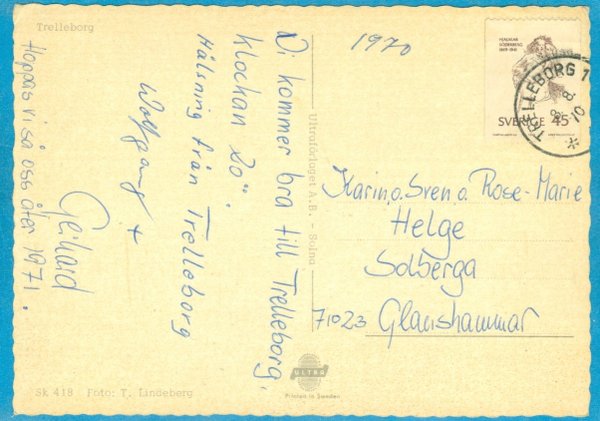 Trelleborg
1970
Vi kommer bra till Trelleborg,
Klockan 20°°.
Hälsning från Trelleborg
Wolfgang +
Gerhard
Hoppas vi så oss åter 1971.
Sk 418 Foto: T. Lindeberg
Ultraförlaget A.B. - Solna
ULTRA
Printed in Sweden
HJALMAR
SÖDERBERG
1869-1941
SVERIGE 45
TRELLEBORG 1
Karin, o. Sven o. Rose-Marie
Helge
Solberga
71023 Glanshammar